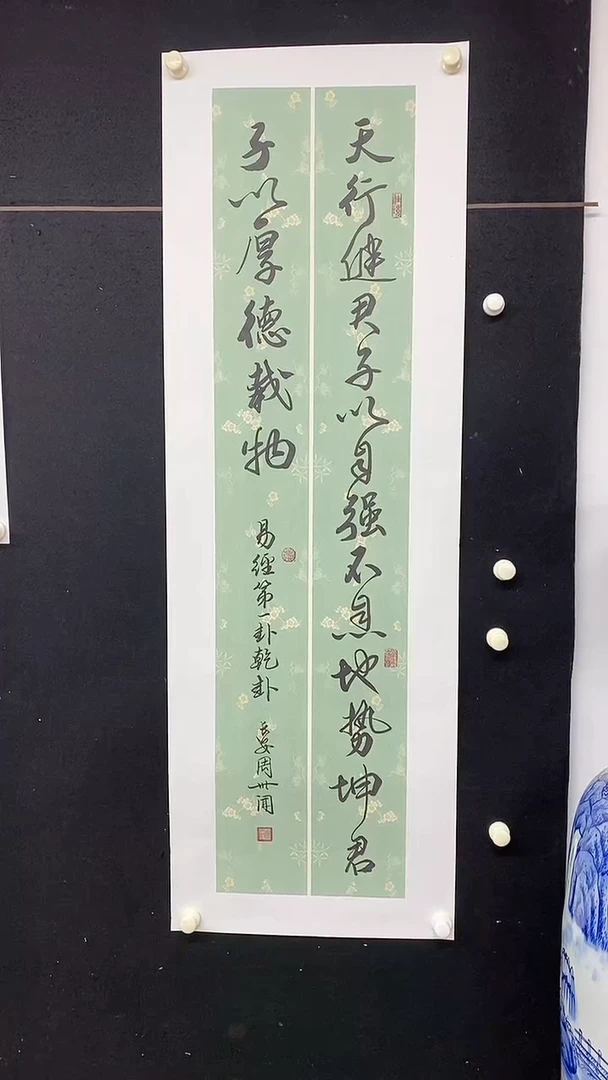 天行健君子以自强不息地势坤君
子以厚德载物
易經第一卦乾卦
周世闻